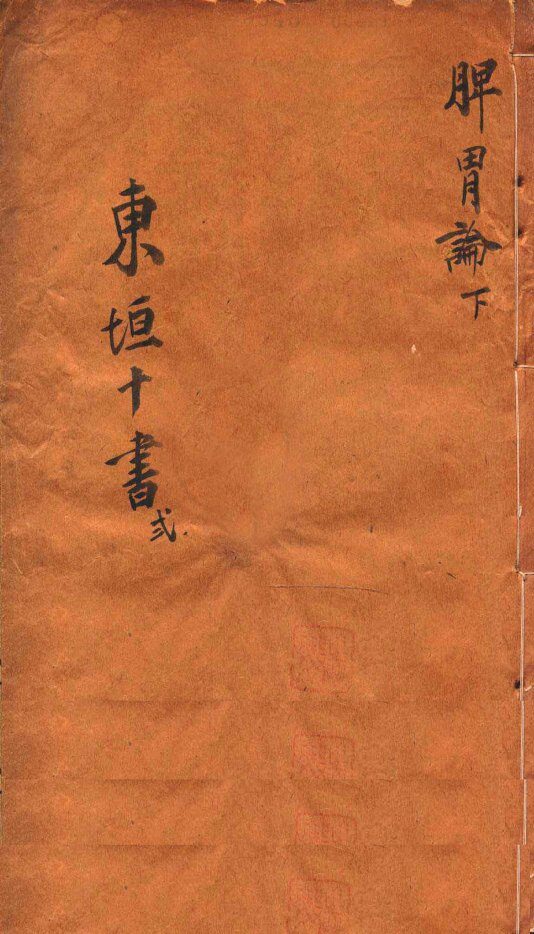 脾胃論下
東垣十書弍